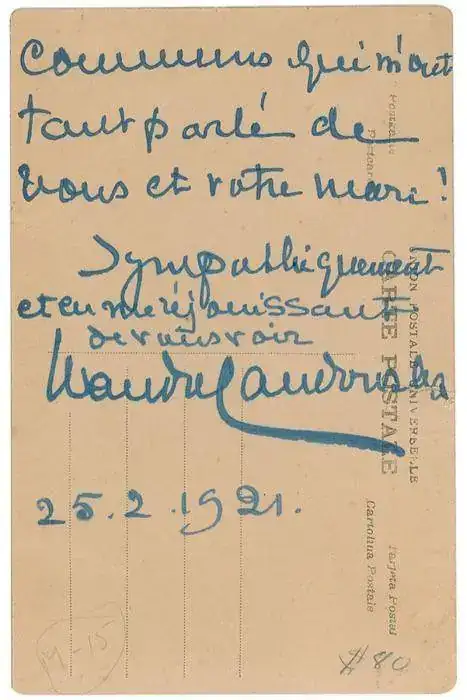 communs qui m'ont
tant parlé de
vous et votre mari !
Sympathiquement
et en me réjouissant
de vous voir
Wanda Landowska
25.2.1921.
UNION POSTALE UNIVERSELLE
CARTE POSTALE
Postkarte
Postcard
Tarjeta Postal
Cartolina Postale
4-15
80